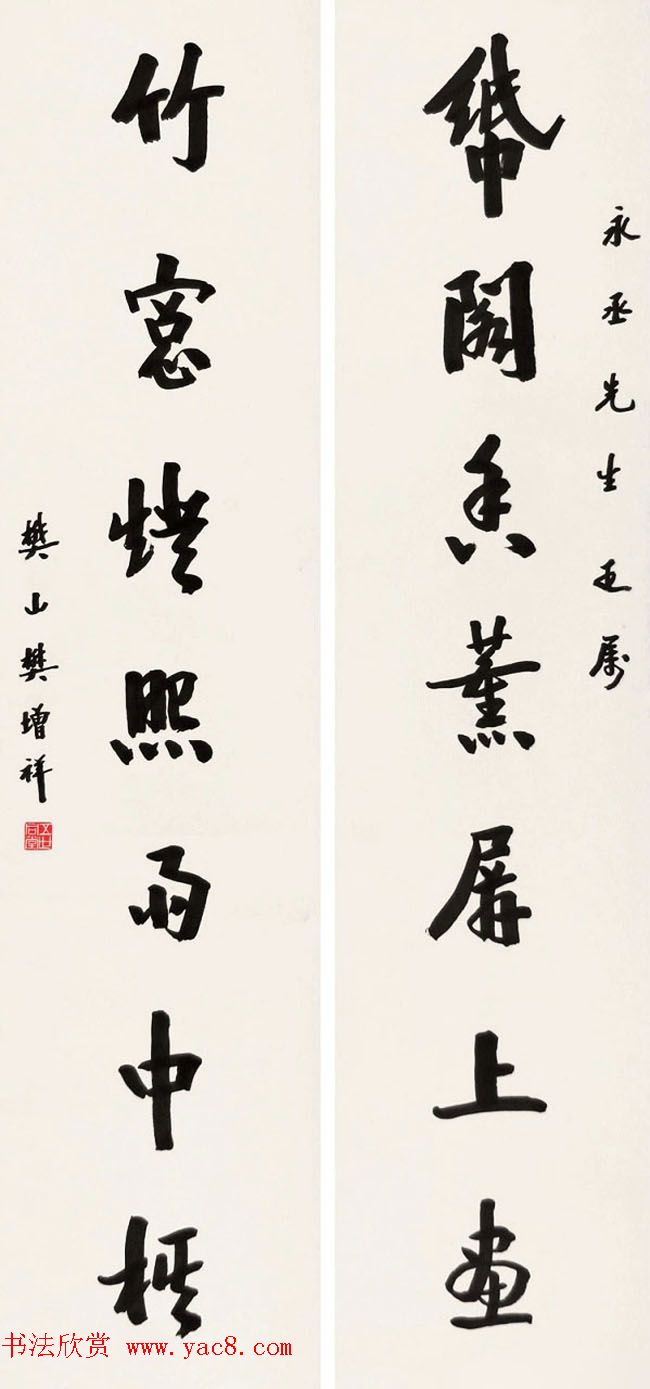 永丞先生正属
紙閣香薰屏上畫
竹窓燈照雨中棋
樊山樊增祥
书法欣赏 www.yac8.com